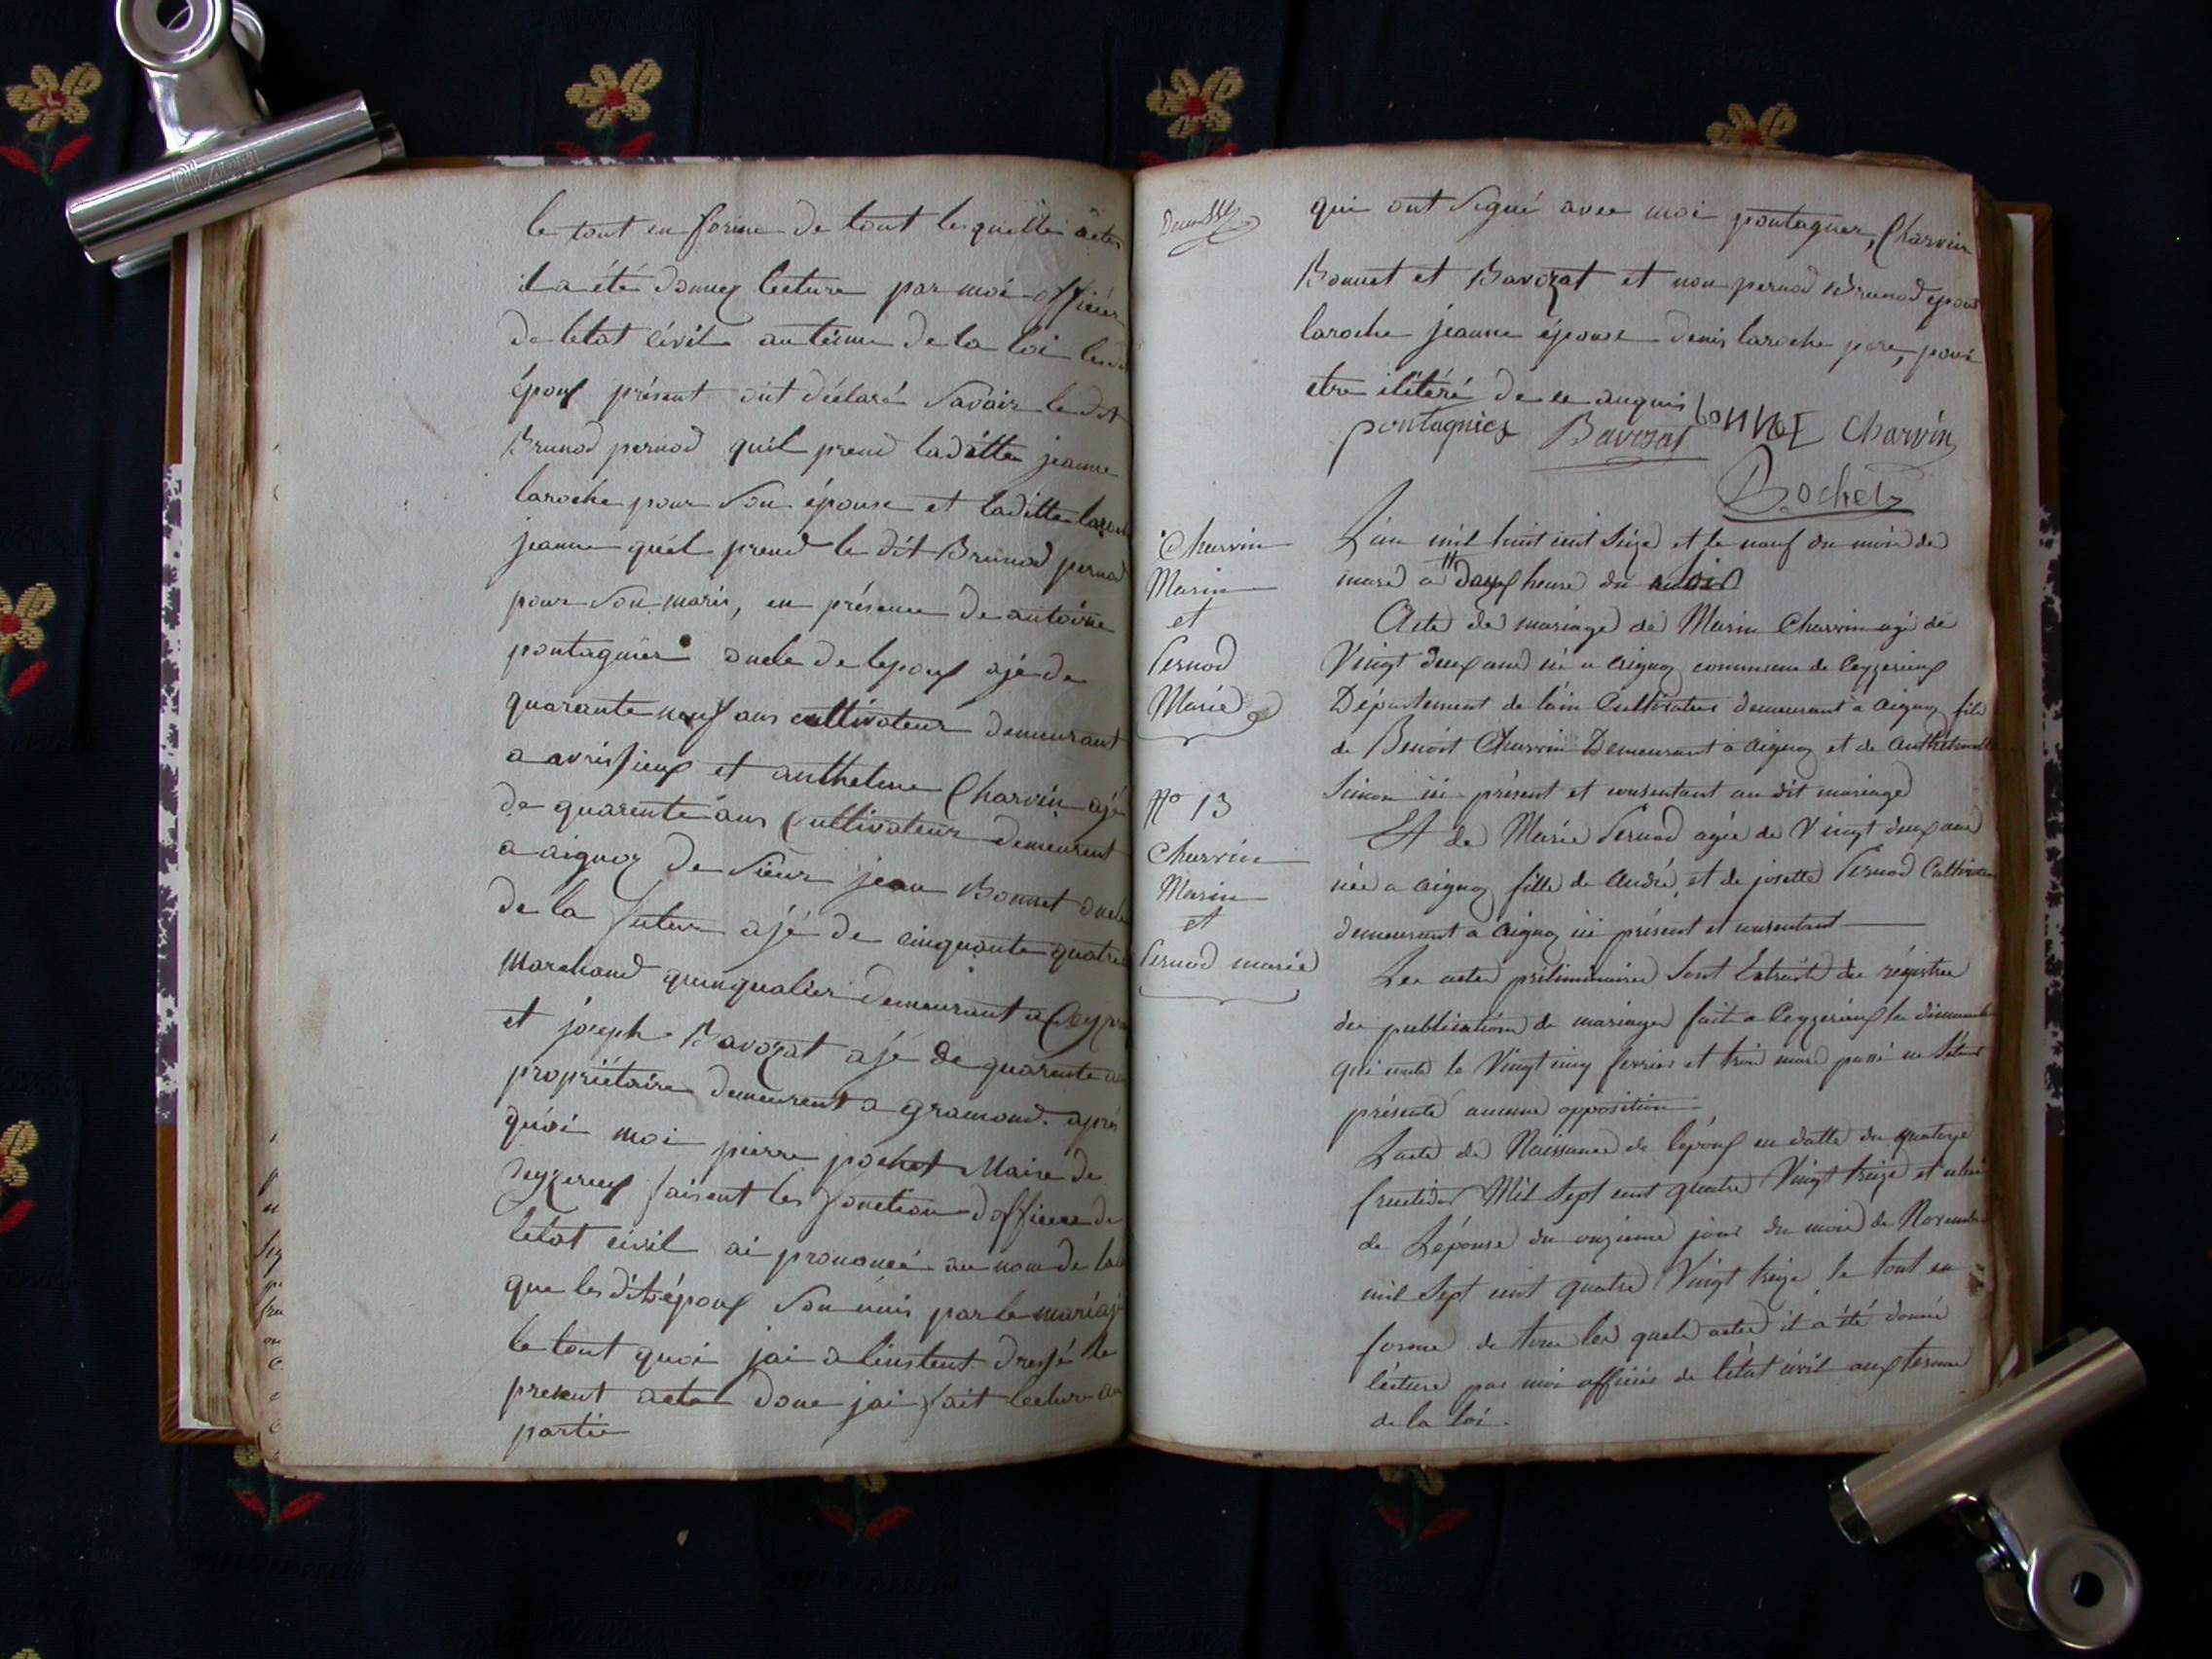 le tout en forme de tout lesquelles actes
il a été donnez lecture par moi officier
de letat civil au terme de la loi lesdit
époux présent ont déclaré Savoir le dit
Brunod pernod quil prend laditte jeanne
laroche pour Son épouse et laditte laroche
jeanne quel prend le dit Brunod pernod
pour Son maris, en présence de antoine
pontagnier oncle de lepoux ajé de
quarante neuf ans cultivateur demeurant
a avrissieux et anthelme Charvin ajé
de quarente ans Cultivateur demeurent
a aignoz de Sieur jean Bonnet oncle
de la future ajé de cinquante quatre
Marchand quinqualier demeurant a Ceyz
et joseph Bavozat ajé de quarente an
propriétaire demeurent a gramond. après
quoi moi pierre pochet Maire de
Ceyzerieux faisent les fonction d officier de
letat civil ai prononcé au nom de la
que les dits époux Son unis par le mariaje
le tout quoi jai a linstent dressé le
present acte donc jai fait lecture au
partie
qui ont Signé avec moi pontagnier, Charvin
Bonnet et Bavozat et non pernod Brunod epoux
laroche jeanne épouse denis laroche pere, pour
etre ilitéré de ce anquis
pontagnier Bavozat bonnet Charvin
Pochet
Charvin
Marin
et
Pernod
Marie
N° 13
Charvin
Marin
et
Pernod marie
L'an mil huit cent Seize et le neuf du mois de
mars a deux heure du
Acte de mariage de Marin Charvin agé de
Vingt deux ans né a aignoz commune de Ceyzerieux
Département de l'ain Cultivateur demeurant a aignoz fils
de Benoit Charvin Demeurant a aignoz et de
Simon ici présent et consentant au dit mariage
Et de Marie Pernod agée de Vingt deux ans
née a aignoz fille de André, et de josette Pernod Cultivateur
demeurant a aignoz ici présent et consentant
Les actes préliminaires Sont Extraits du régistre
des publications de mariages fait a Ceyzerieux les dimanche
Vingt cinq fevrier et trois mars passé ne S'étant
présenté aucune opposition
L'acte de Naissance de l'époux en datte du quatorze
fructidor Mil Sept cent quatre Vingt treize et celui
de L'épouse du onzieme jour du mois de Novembre
mil Sept cent quatre Vingt treize, le tout en
forme de tous les quels actes il a été donné
lécture par moi officier de l'état civil aux termes
de la loi.